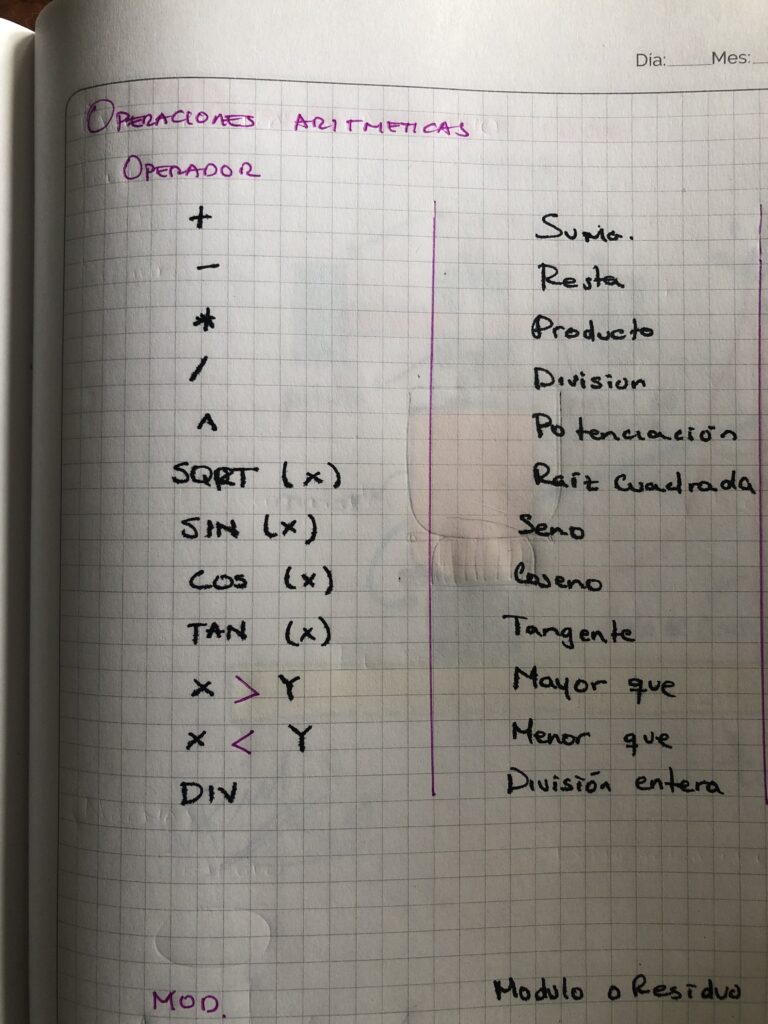 Día: Mes:
OPERACIONES ARITMETICAS
OPERADOR
+ Suma.
- Resta
* Producto
/ Division
^ Potenciación
SQRT (x) Raíz Cuadrada
SIN (x) Seno
COS (x) Coseno
TAN (x) Tangente
X > Y Mayor que
X < Y Menor que
DIV División entera
MOD. Modulo o Residuo